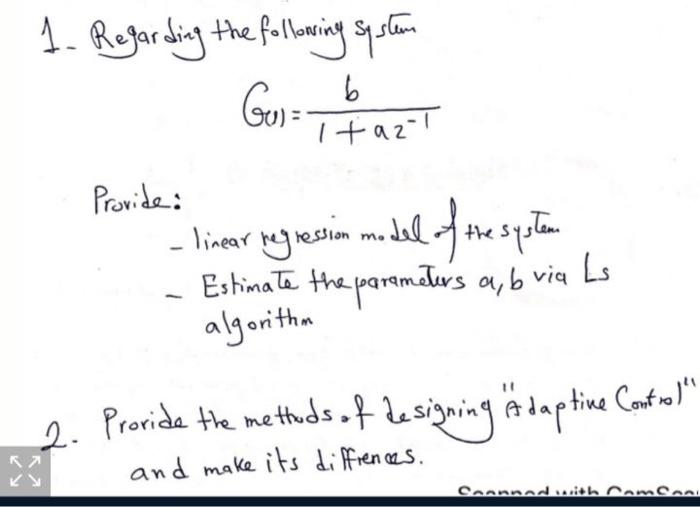 1- Regarding the following system
G(z) = b / 1 + az⁻¹
Provide:
- linear regression model of the system
- Estimate the parameters a, b via Ls
algorithm
2- Provide the methods of designing "Adaptive Control"
and make its diffrences.
Scanned with CamScan